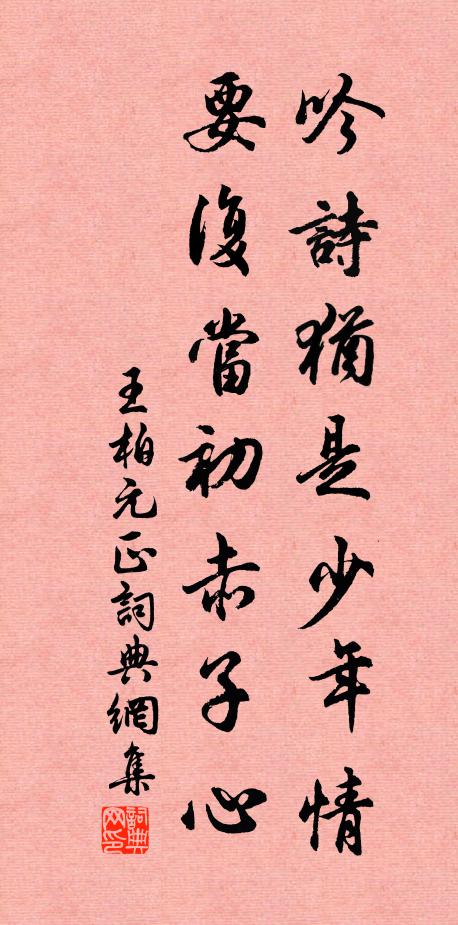 吟詩猶是少年情
要復當初赤子心
王柏元正詞典網集
詞典网印